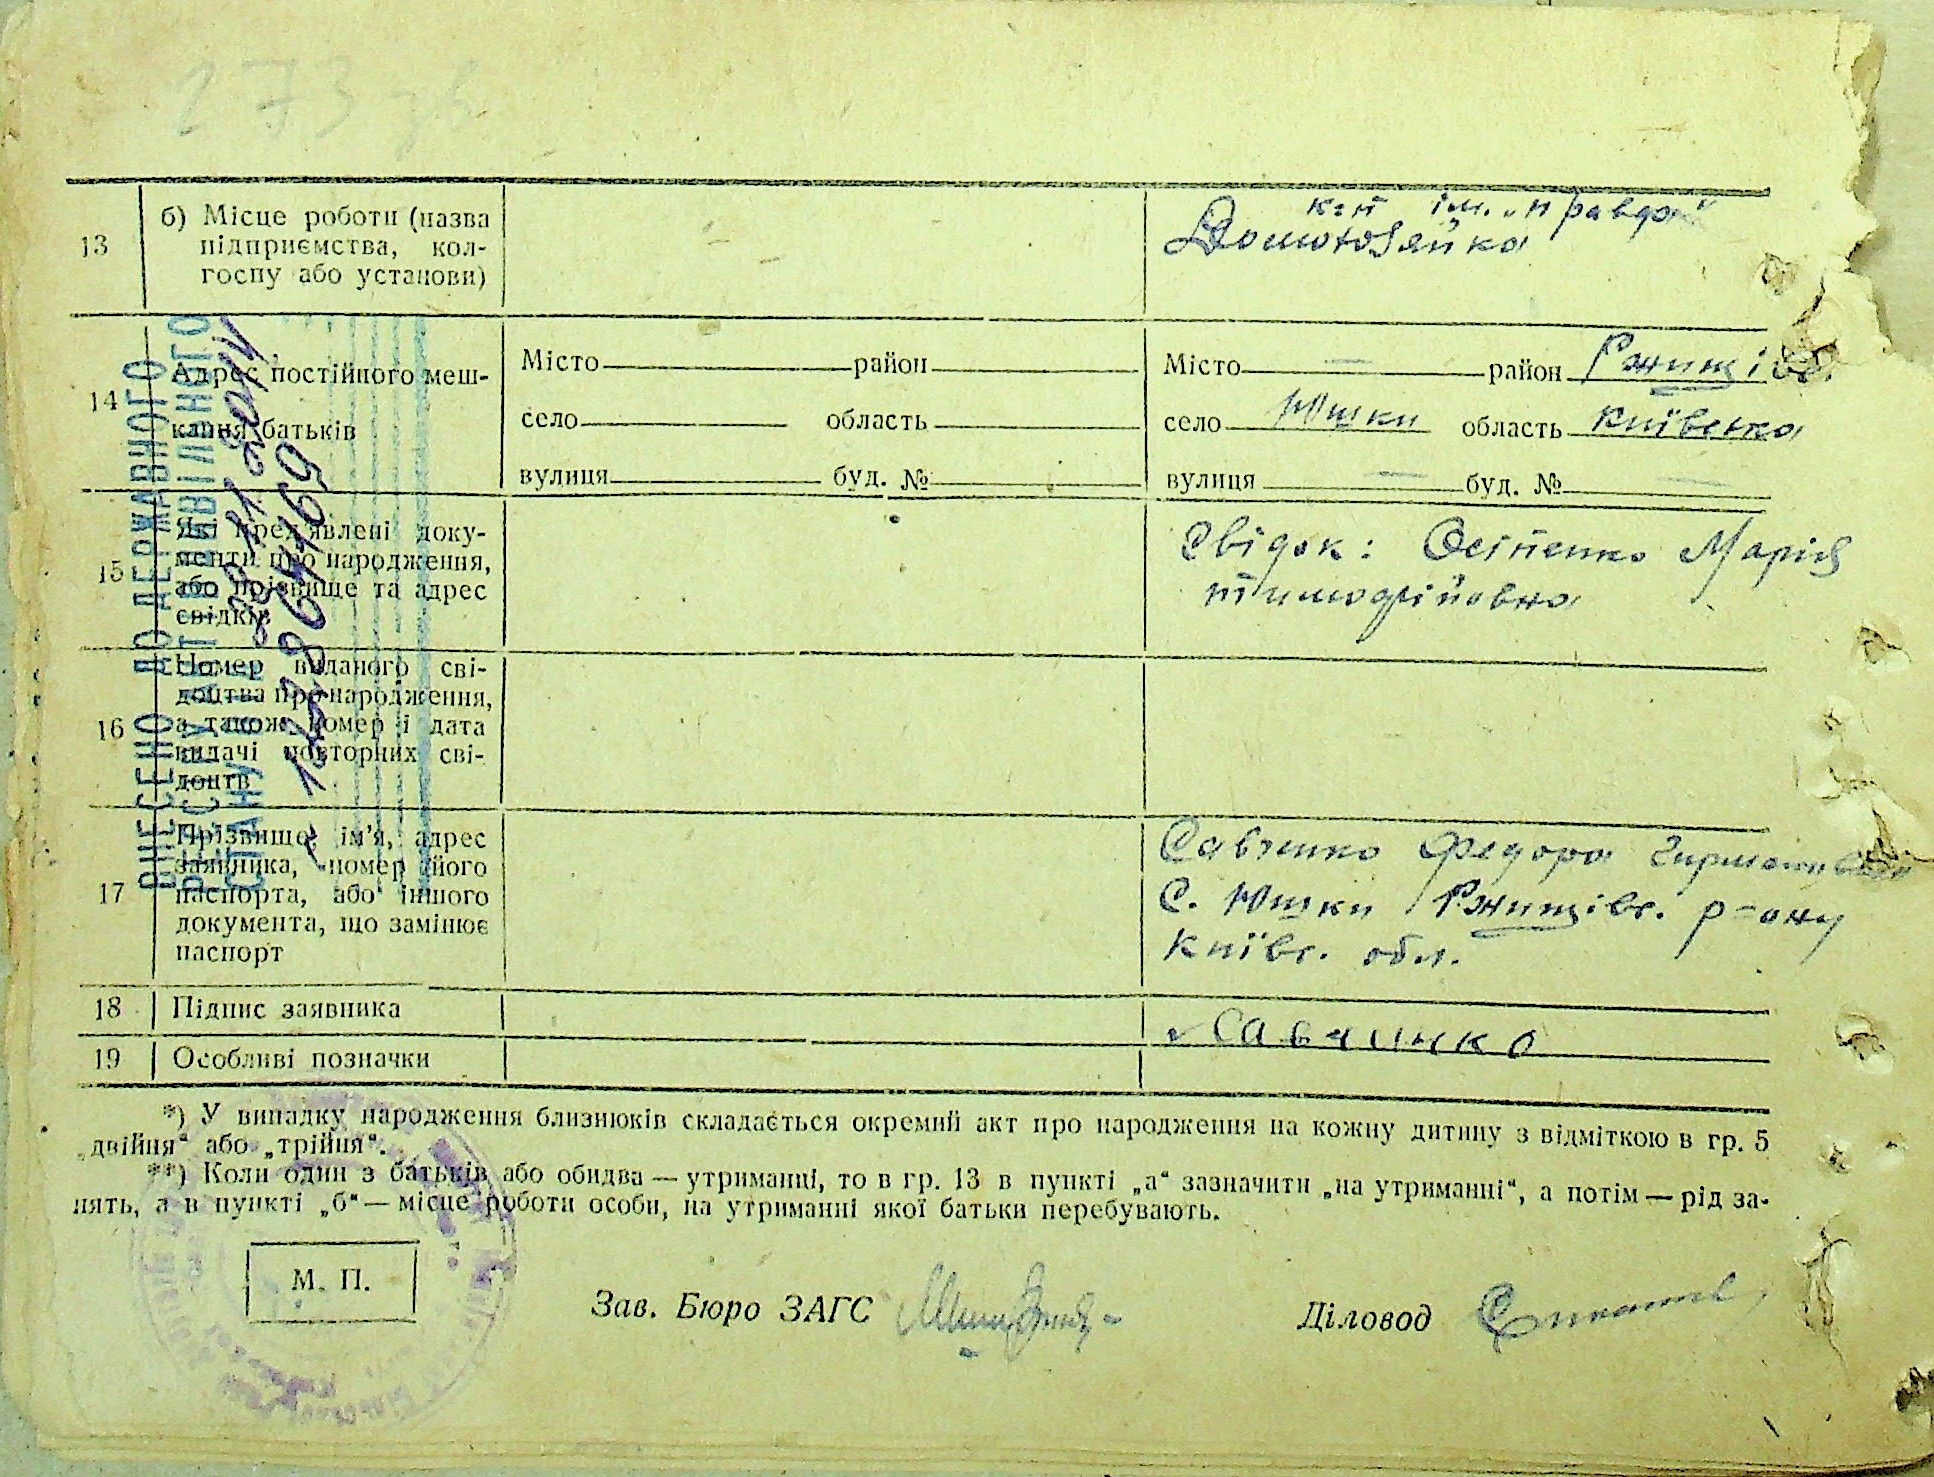 273 зв
13 б) Місце роботи (назва підприємства, кол-госпу або установи)
к-п ім. „Правда“
Домохозяйка
14 Адрес постійного меш-кання батьків
Місто район
село область
вулиця буд. №
Місто — район Ржищівс.
село Юшки область Київська
вулиця — буд. № —
15 Які пред'явлені доку-менти про народження, або прізвище та адрес свідків
Свідок: Осіпенко Марія
Тимофіївна
16 Номер виданого сві-доцтва про народження, а також номер і дата видачі повторних сві-доцтв
17 Прізвище, ім'я, адрес заявника, номер його паспорта, або іншого документа, що замінює паспорт
Савченко Федора
С. Юшки Ржищівс. р-ону
Київс. обл.
18 Підпис заявника
Савчинко
19 Особливі позначки
ВНЕСЕНО ДО ДЕРЖАВНОГО
РЕЄСТРУ АКТІВ ЦИВІЛЬНОГО
СТАНУ
*) У випадку народження близнюків складається окремий акт про народження на кожну дитину з відміткою в гр. 5
„двійня“ або „трійня“.
**) Коли один з батьків або обидва — утриманці, то в гр. 13 в пункті „а“ зазначити „на утриманні“, а потім — рід за-
нять, а в пункті „б“ — місце роботи особи, на утриманні якої батьки перебувають.
М. П.
Зав. Бюро ЗАГС
Діловод